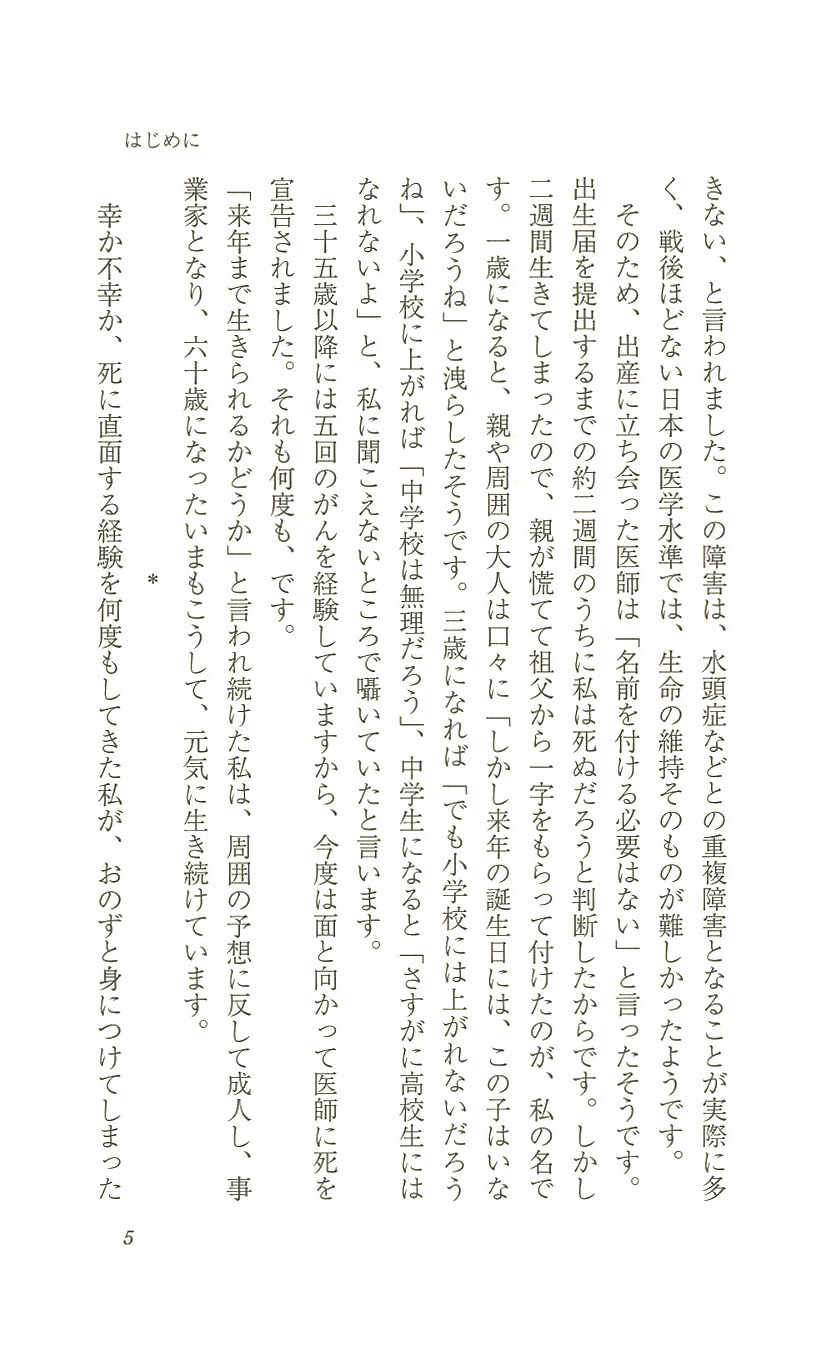 はじめに
きない、と言われました。この障害は、水頭症などとの重複障害となることが実際に多
く、戦後ほどない日本の医学水準では、生命の維持そのものが難しかったようです。
そのため、出産に立ち会った医師は「名前を付ける必要はない」と言ったそうです。
出生届を提出するまでの約二週間のうちに私は死ぬだろうと判断したからです。しかし
二週間生きてしまったので、親が慌てて祖父から一字をもらって付けたのが、私の名で
す。一歳になると、親や周囲の大人は口々に「しかし来年の誕生日には、この子はいな
いだろうね」と洩らしたそうです。三歳になれば「でも小学校には上がれないだろう
ね」、小学校に上がれば「中学校は無理だろう」、中学生になると「さすがに高校生には
なれないよ」と、私に聞こえないところで囁いていたと言います。
三十五歳以降には五回のがんを経験していますから、今度は面と向かって医師に死を
宣告されました。それも何度も、です。
「来年まで生きられるかどうか」と言われ続けた私は、周囲の予想に反して成人し、事
業家となり、六十歳になったいまもこうして、元気に生き続けています。
*
幸か不幸か、死に直面する経験を何度もしてきた私が、おのずと身につけてしまった
5